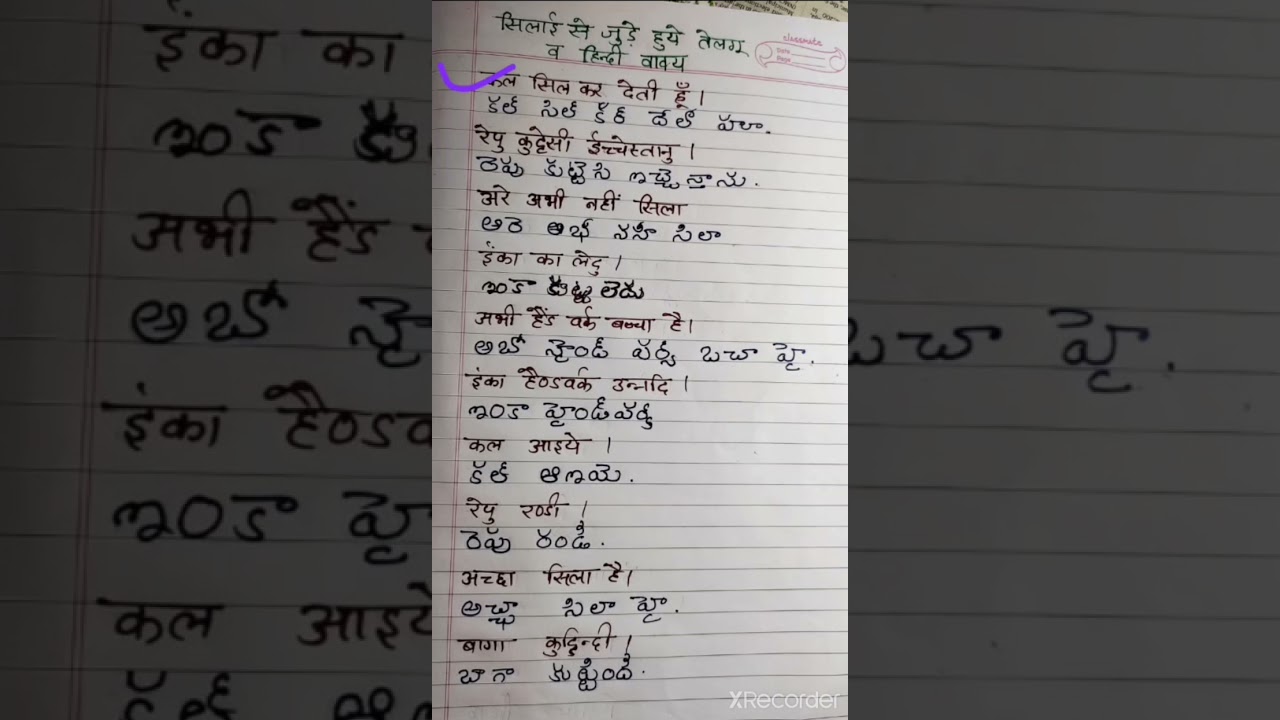 सिलाई से जुड़े हुये तेलगू
व हिन्दी वाक्य
classmate
Date
Page
कल सिल कर देती हूँ।
కల్ సిల్ కర్ దేతీ హూ.
रेपु कुट्टेसी ईच्चेस्तानु।
రెపు కుట్టెసి ఇచ్చెస్తాను.
अरे अभी नहीं सिला
అరె అభీ నహీ సిలా
इंका का लेदु।
ఇంకా కుట్ట లెదు
अभी हैंड वर्क बच्चा है।
అభీ హైండ్ వర్క్ బచా హై.
इंका हैण्डवर्क उन्नदि।
ఇంకా హైండ్‌వర్కు
कल आइये।
కల్ ఆఇయె.
रेपु रण्डी।
రెపు రండి.
अच्छा सिला है।
అచ్ఛా సిలా హై.
बागा कुट्टिन्दी।
బాగా కుట్టింది.
XRecorder